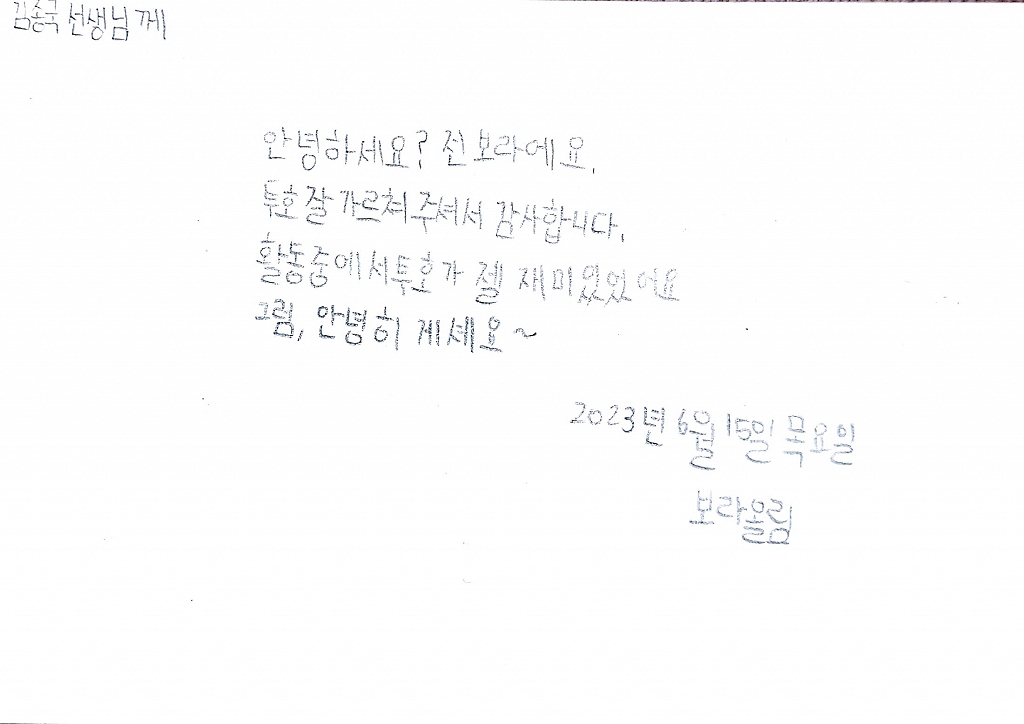 김종국 선생님께
안녕하세요? 전 보라에요.
투호 잘 가르쳐 주셔서 감사합니다.
활동중에서 투호가 젤 재미있었어요
그럼, 안녕히 계세요~
2023년 6월 15일 목요일
보라올림